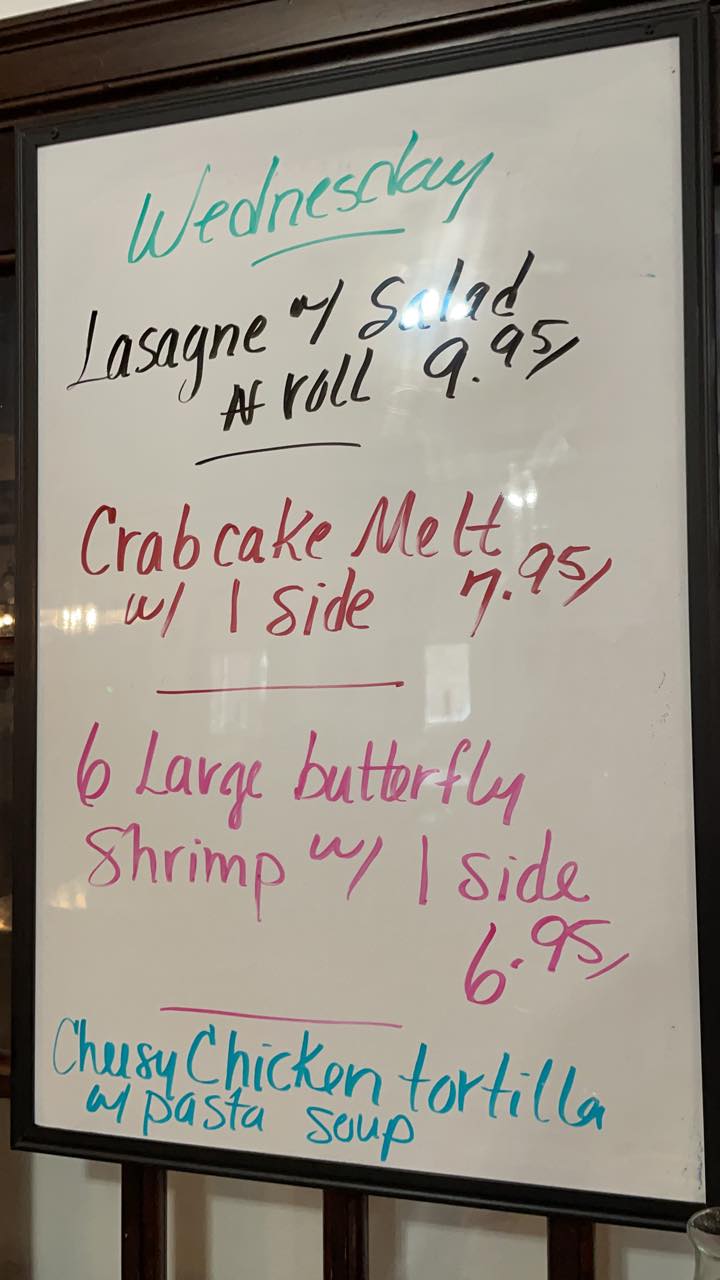 Wednesday
Lasagne w/ Salad
& roll 9.95
Crabcake Melt
w/ 1 side 7.95
6 Large butterfly
Shrimp w/ 1 side
6.95
Cheesy Chicken tortilla
w/ pasta soup